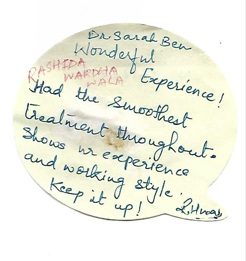 Dr Sarah Ben
Wonderful
Experience!
RASHIDA
WARDHA
WALA
Had the smoothest
treatment throughout.
Shows ur experience
and working style.
Keep it up!